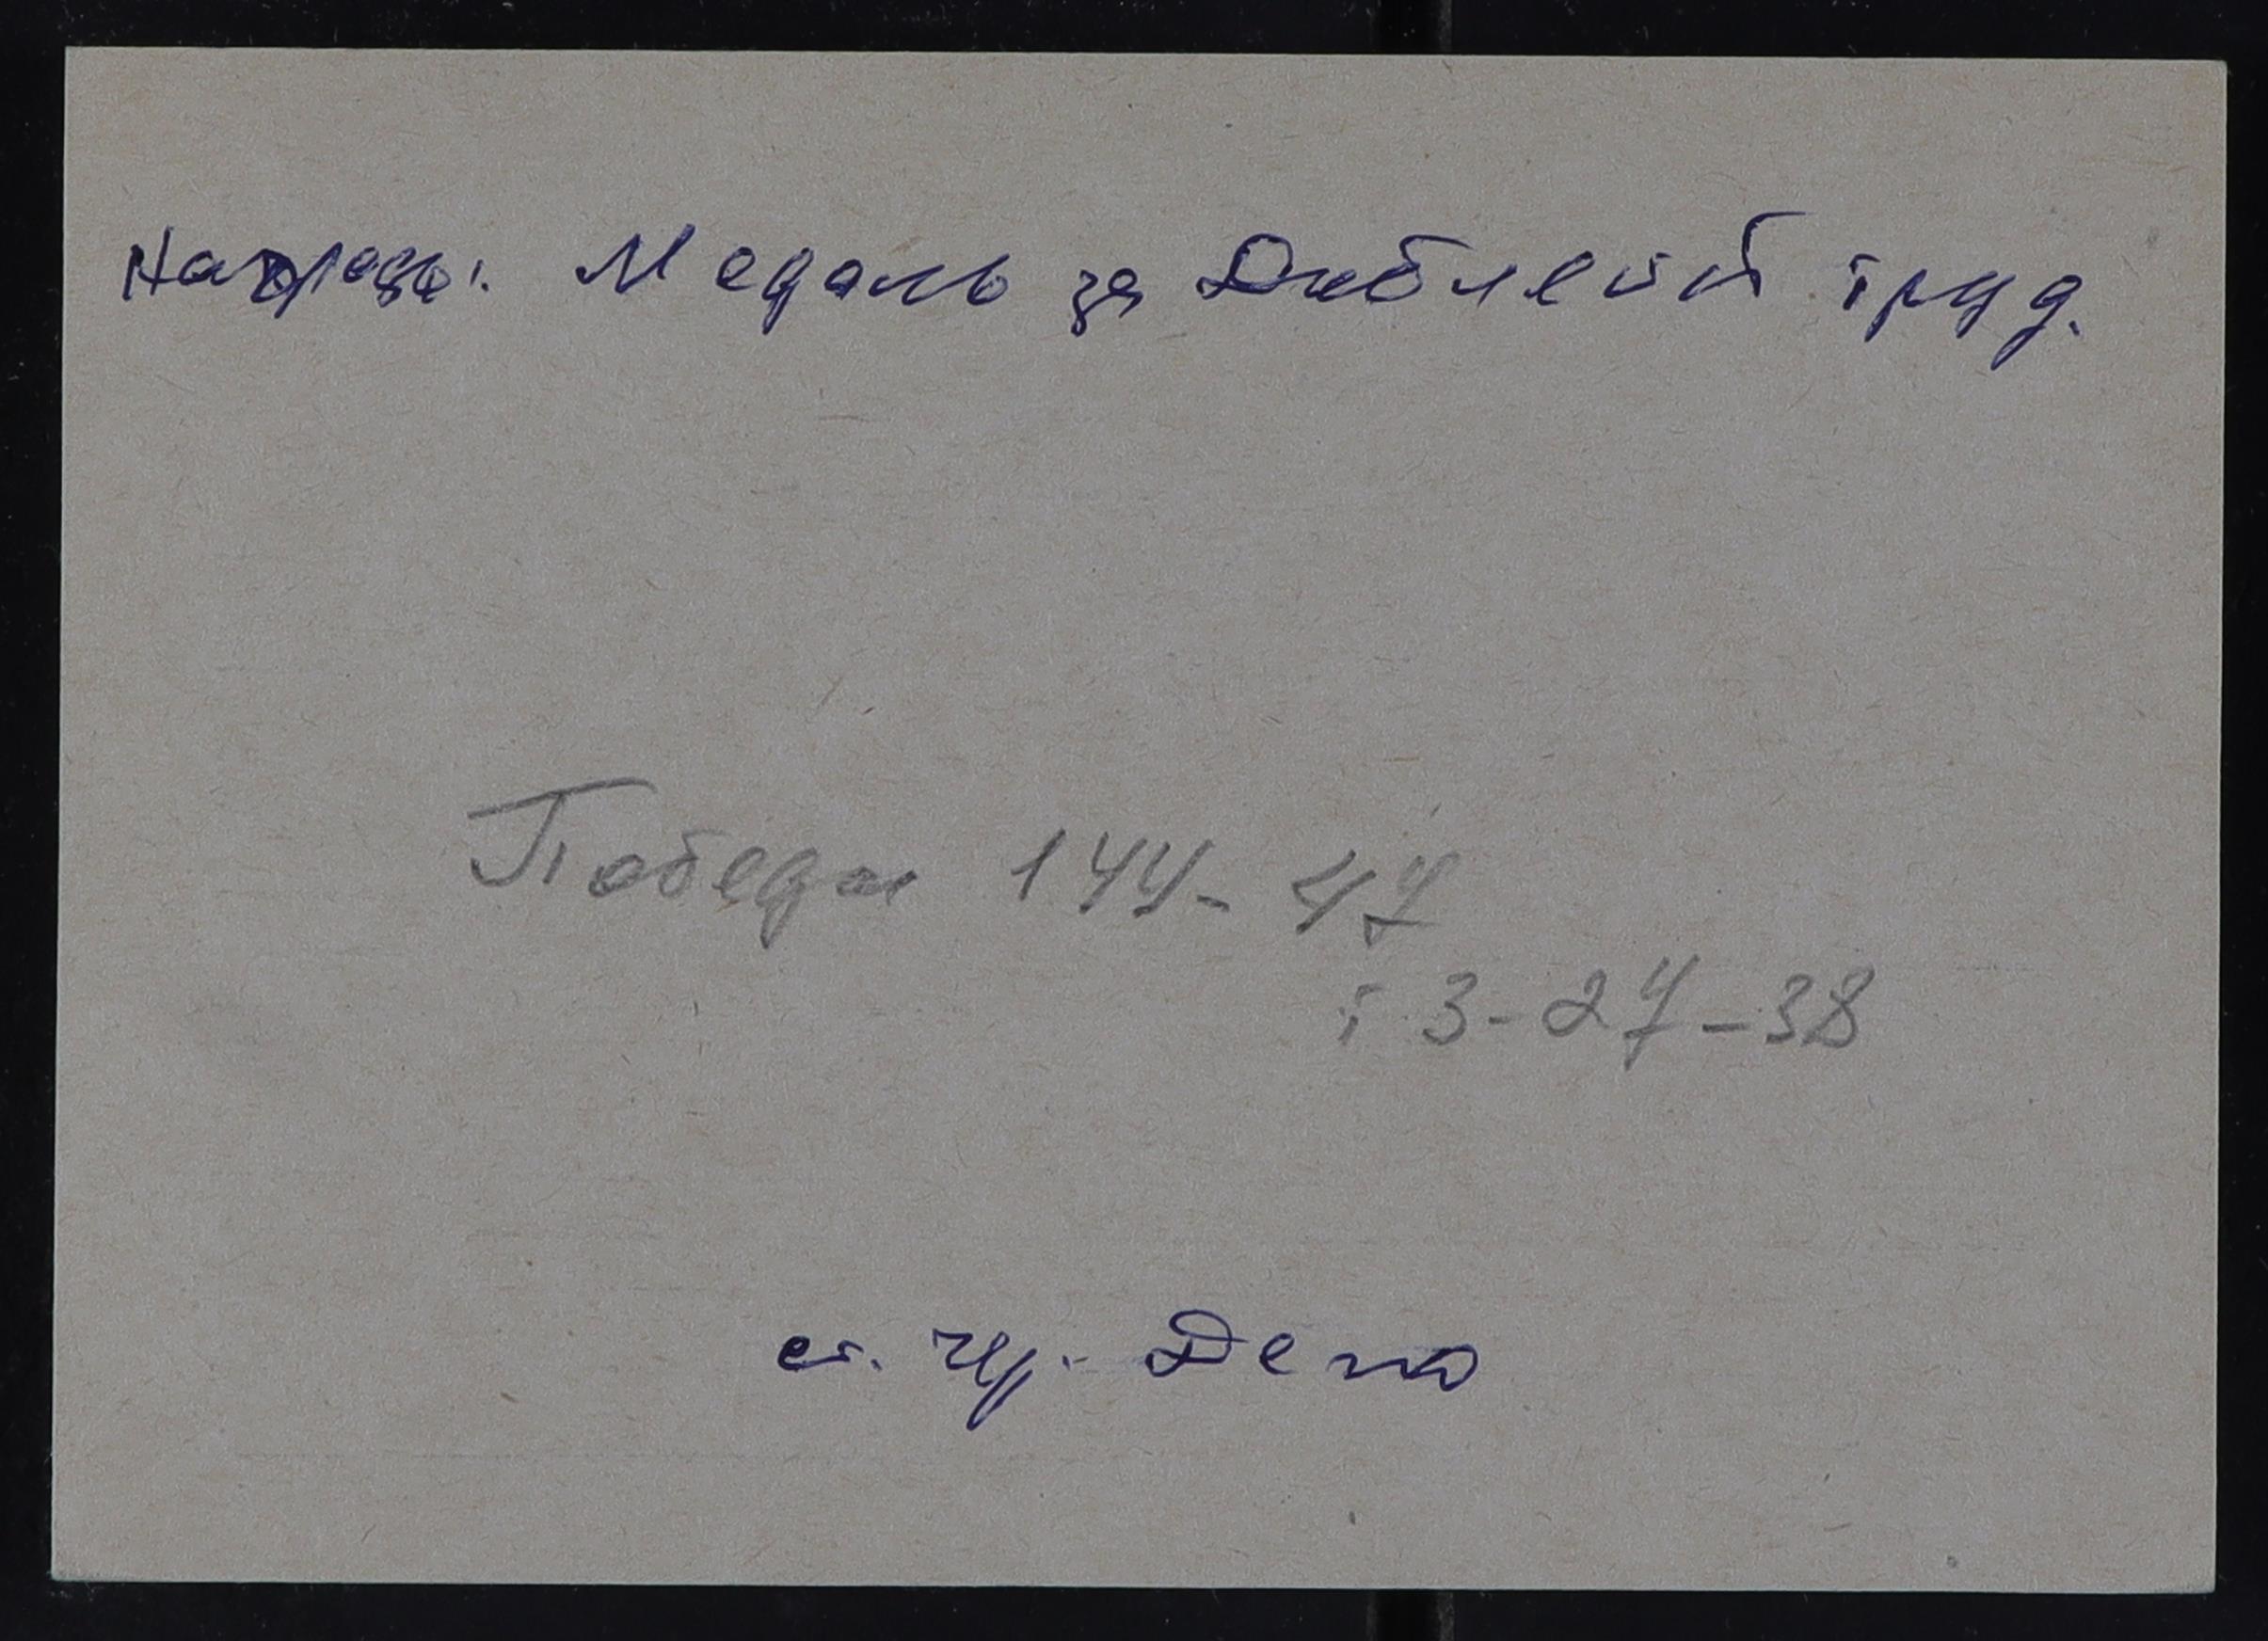 Награды: Медаль за Доблесный труд.
Победы 144-47
т 3-27-38
ст. чл. Депо